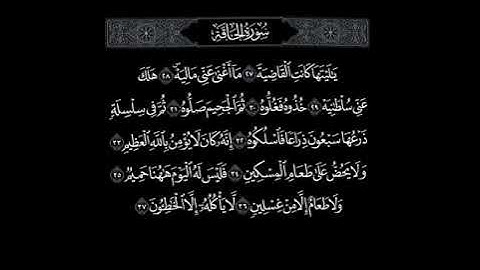 سُورَةُ الحَاقَّةِ
يَٰلَيْتَهَا كَانَتِ ٱلْقَاضِيَةَ ٢٧ مَآ أَغْنَىٰ عَنِّى مَالِيَهْ ۜ ٢٨ هَلَكَ
عَنِّى سُلْطَٰنِيَهْ ٢٩ خُذُوهُ فَغُلُّوهُ ٣٠ ثُمَّ ٱلْجَحِيمَ صَلُّوهُ ٣١ ثُمَّ فِى سِلْسِلَةٍ
ذَرْعُهَا سَبْعُونَ ذِرَاعًا فَٱسْلُكُوهُ ٣٢ إِنَّهُۥ كَانَ لَا يُؤْمِنُ بِٱللَّهِ ٱلْعَظِيمِ ٣٣
وَلَا يَحُضُّ عَلَىٰ طَعَامِ ٱلْمِسْكِينِ ٣٤ فَلَيْسَ لَهُ ٱلْيَوْمَ هَٰهُنَا حَمِيمٌ ٣٥
وَلَا طَعَامٌ إِلَّا مِنْ غِسْلِينٍ ٣٦ لَّا يَأْكُلُهُۥٓ إِلَّا ٱلْخَٰطِـُٔونَ ٣٧